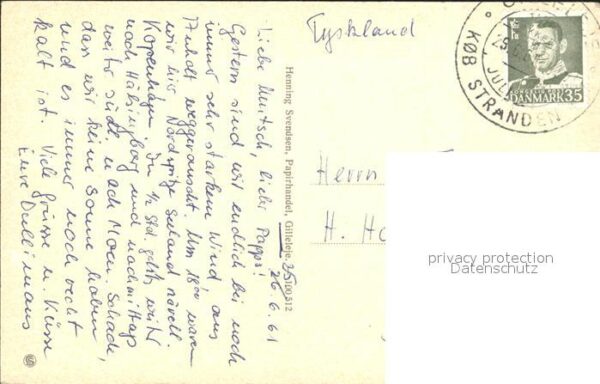 Tyskland
26. 6. 61
Liebe Mutsch, lieber Papps!
Gestern sind wir endlich bei noch
immer sehr starkem Wind aus
weggerauscht. Um 18°° waren
wir hier Nordspitze Seeland nördl.
Kopenhagen. In ½ Std. geht's weiter
nach Hälsingborg und nachmittags
weiter südl. n ach Moen. Schade,
dass wir keine Sonne haben
und es immer noch recht
kalt ist. Viele Grüsse u. Küsse
Eure
Henning Svendsen, Papirhandel, Gilleleje. 100512
Herrn
H.
KØB STRANDEN
JUL
DANMARK 35
privacy protection
Datenschutz